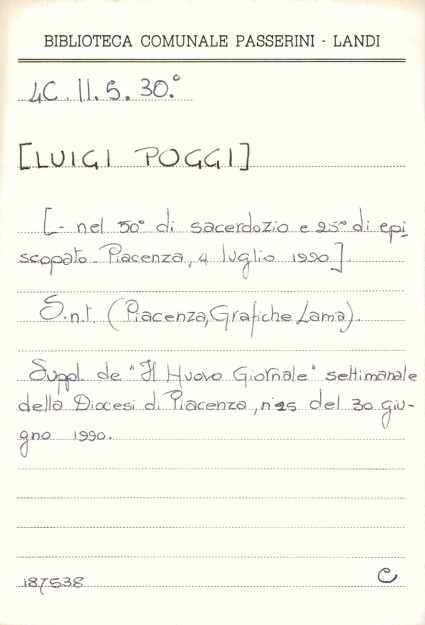 BIBLIOTECA COMUNALE PASSERINI - LANDI
4C.II.5.30.°
[LUIGI POGGI]
[- nel 50° di sacerdozio e 25° di epi
scopato. Piacenza, 4 luglio 1990].
S.n.t. (Piacenza, Grafiche Lama).
Suppl. de "Il Nuovo Giornale" settimanale
della Diocesi di Piacenza, n°25 del 30 giu-
gno 1990.
187538 C